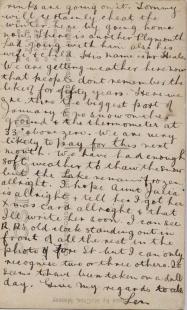 rinks are going on it. Tommy
will certainly cheat the
winter here by going home
now. There is another Plymouth
lad going with him also his
wife & child. his name is
We are getting weather here now
that people dont remember the
like of for fifty years. Here we
are, the biggest part of
January gone now and
the thermometer at
33° above zero. We are very
likely to pay for this next
month. We have had enough
soft weather to thaw the snow
but the Lake remains frozen
allright. I hope Aunt
is allright & tell her I got her
Xmas card allright & that
I'll write her soon. I can see
R.P's old clock standing out in
front of all the rest in the
photo of But I can only
recognise two or three others. It
seems t'have been taken on a dull
day. Give my regards to all
Len.